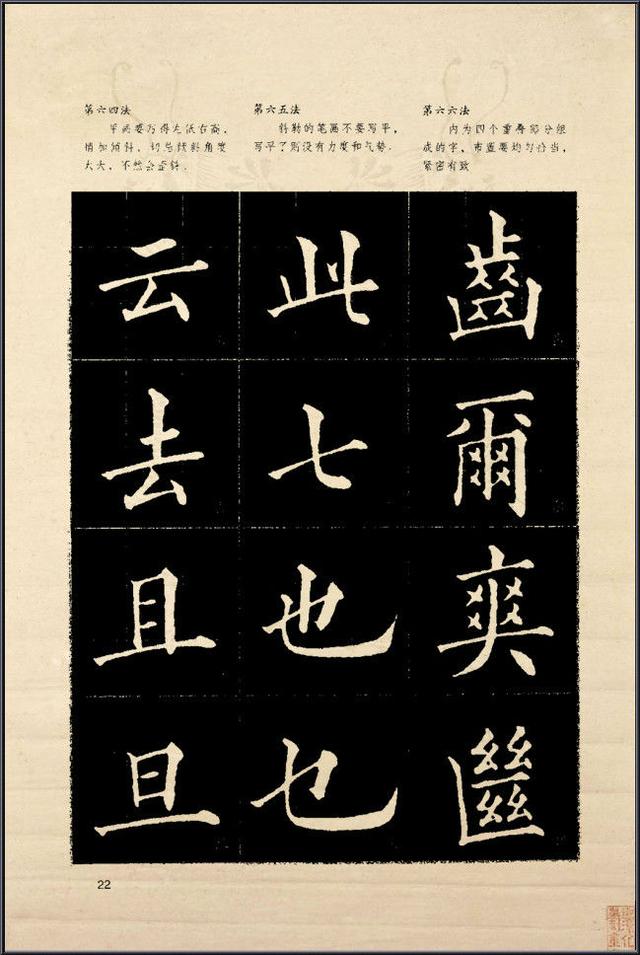 第六四法
平画要写得左低右高,
稍加倾斜, 切忌倾斜角度
太大, 不然会歪斜.
第六五法
斜勒的笔画不要写平,
写平了则没有力度和气势.
第六六法
内为四个重叠部分组
成的字, 布置要均匀恰当,
紧密有致
云去且旦
此七也乜
齒爾爽㡭
22